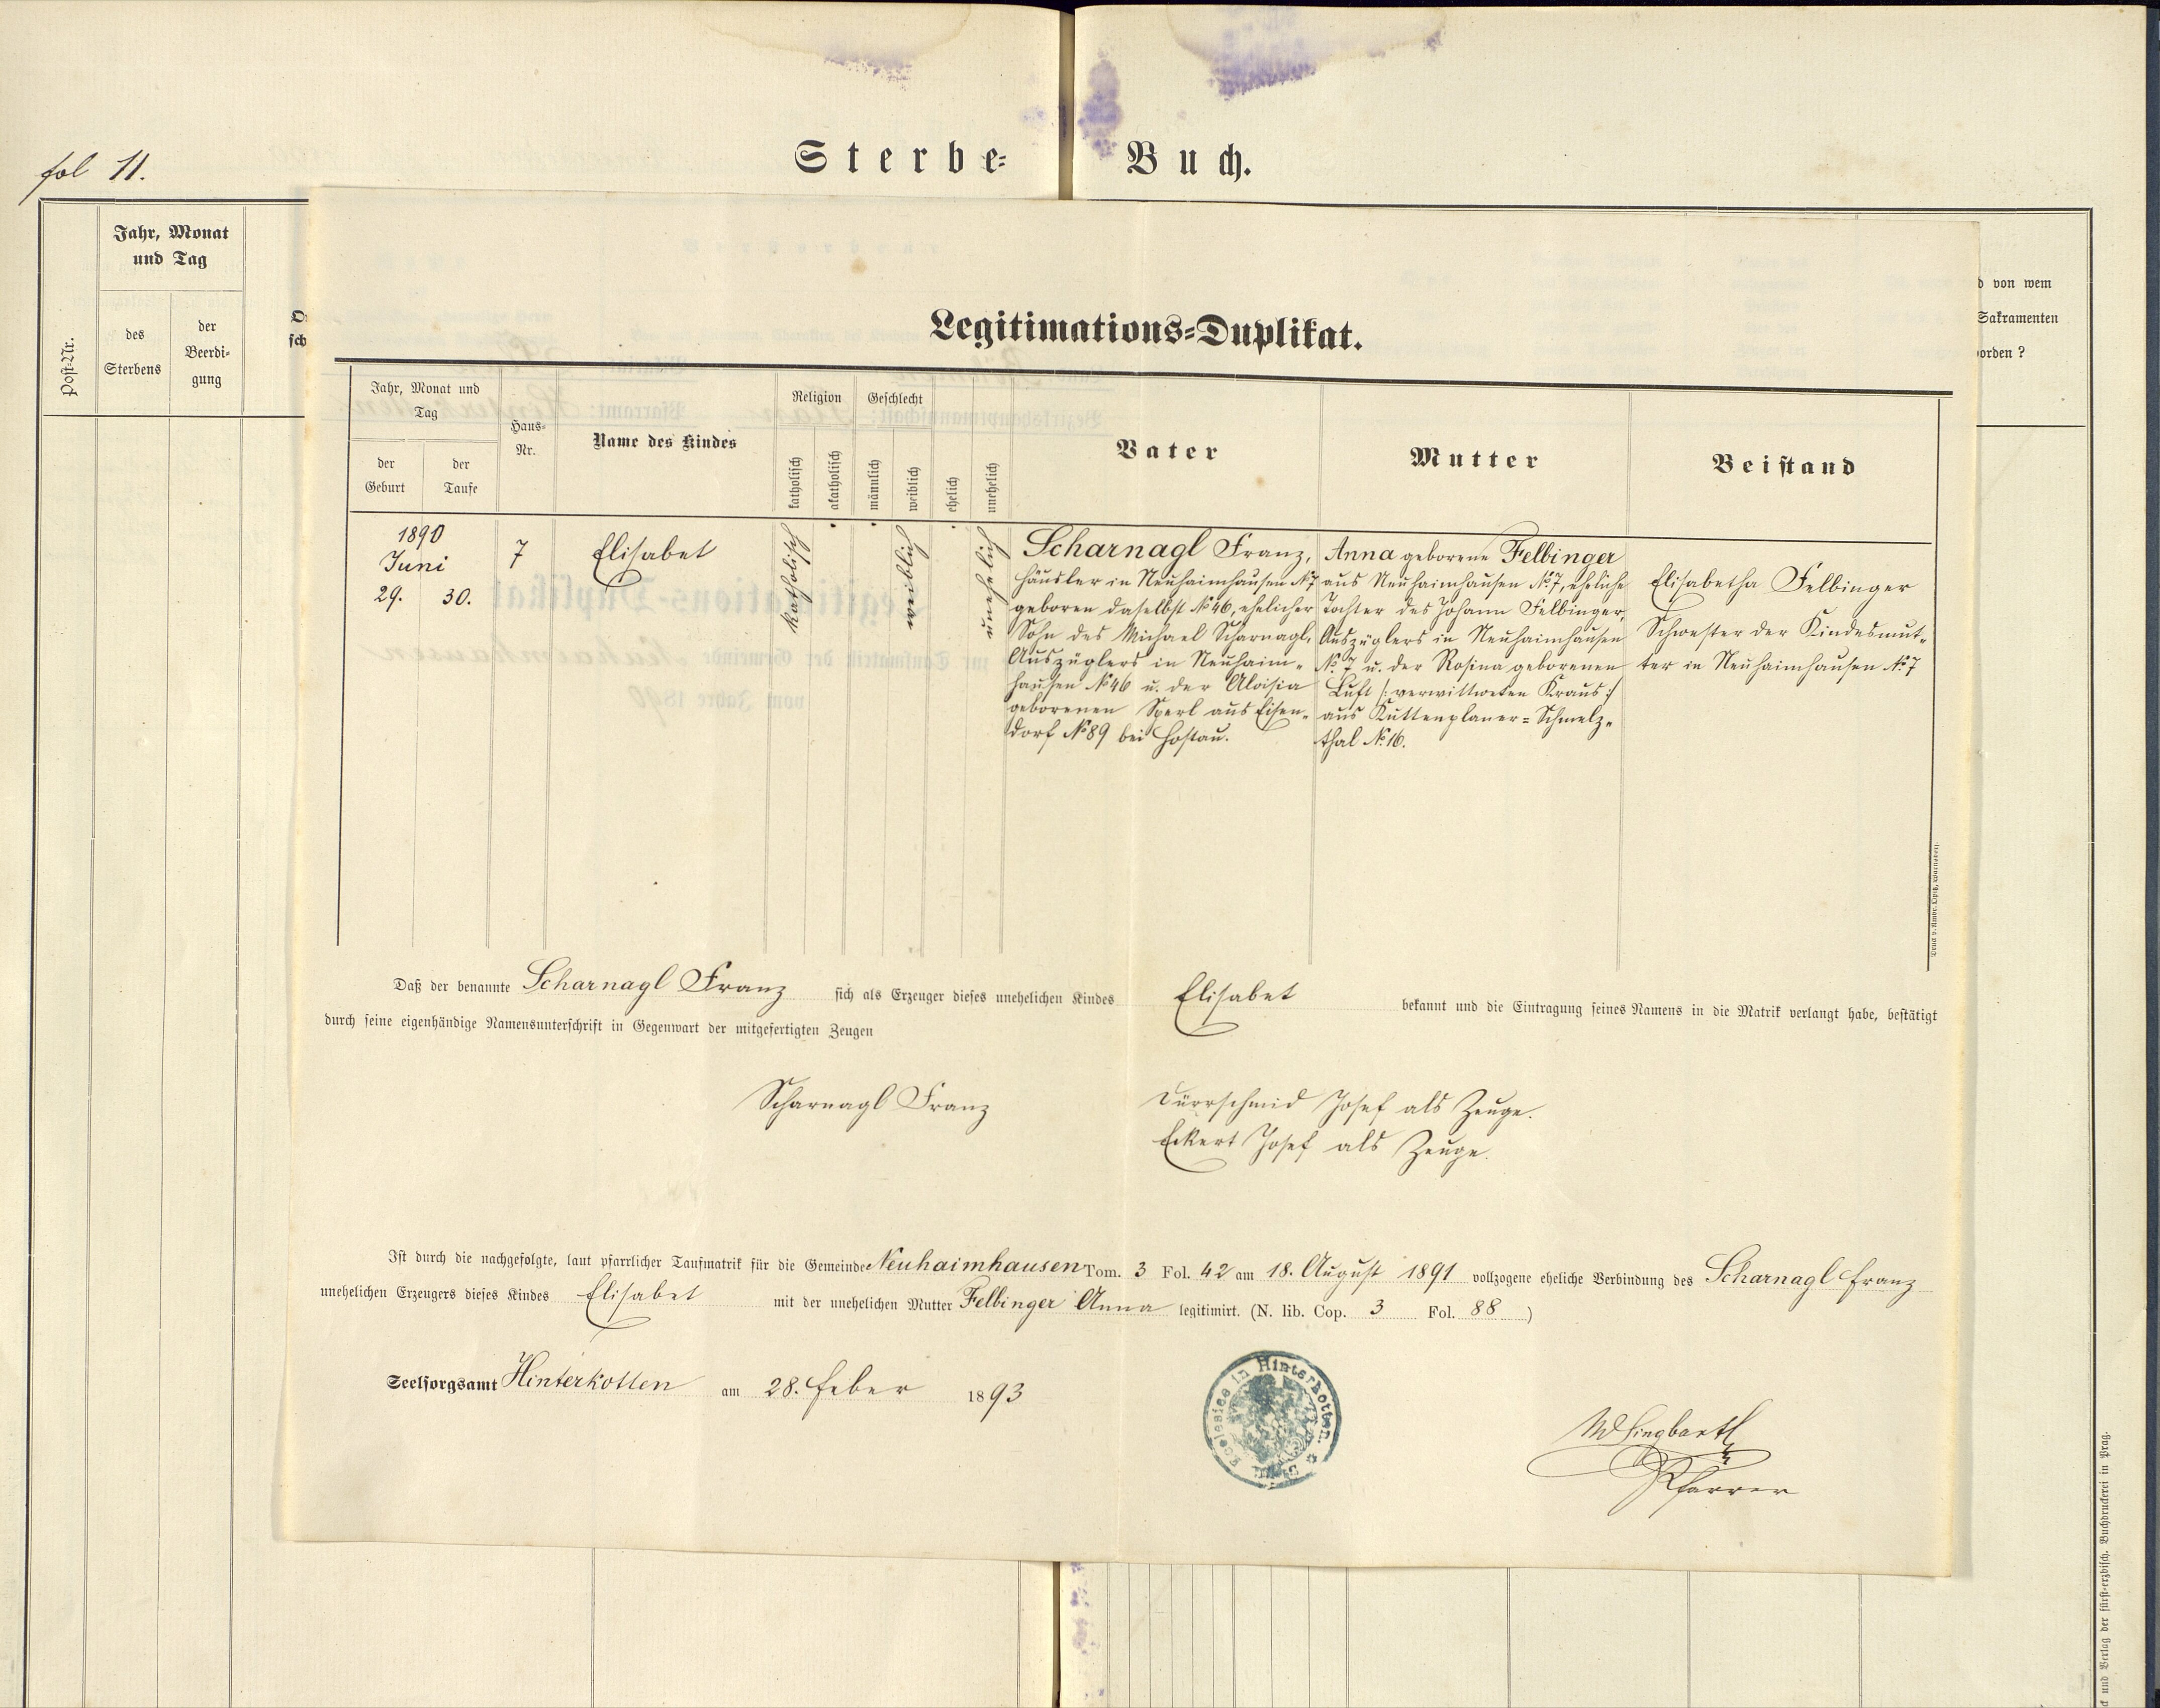 fol 11.
Sterbe-Buch.
Post-Nr.
Jahr, Monat
und Tag
des
Sterbens
der
Beerdi-
gung
d von wem
Sakramenten
orden ?
Legitimations-Duplikat.
Jahr, Monat und
Tag
der
Geburt
der
Taufe
Haus-
Nr.
Name des Kindes
Religion
katholisch
akatholisch
Geschlecht
männlich
weiblich
ehelich
unehelich
Vater
Mutter
Beistand
1890
Juni
29. 30.
7
Elisabet
katholisch
weiblich
unehelich
Scharnagl Franz,
Häusler in Neuhaimhausen № 7
geboren daselbst № 46, ehelicher
Sohn des Michael Scharnagl,
Auszüglers in Neuhaim-
hausen № 46 u. der Aloisia
geborenen Sperl aus Eisen-
dorf № 89 bei Hostau.
Anna geborene Felbinger
aus Neuhaimhausen № 7, eheliche
Tochter des Johann Felbinger,
Auszüglers in Neuhaimhausen
№ 7 u. der Rosina geborenen
Luft /: verwittweten Kraus :/
aus Kuttenplaner-Schmelz-
thal № 16.
Elisabetha Felbinger
Schwester der Kindesmut-
ter in Neuhaimhausen № 7
Daß der benannte Scharnagl Franz sich als Erzeuger dieses unehelichen Kindes Elisabet bekannt und die Eintragung seines Namens in die Matrik verlangt habe, bestätigt
durch seine eigenhändige Namensunterschrift in Gegenwart der mitgefertigten Zeugen
Scharnagl Franz
Dürrschmid Josef als Zeuge.
Eckert Josef als Zeuge.
Ist durch die nachgefolgte, laut pfarrlicher Taufmatrik für die Gemeinde Neuhaimhausen Tom. 3 Fol. 42 am 18. August 1891 vollzogene eheliche Verbindung des Scharnagl Franz
unehelichen Erzeugers dieses Kindes Elisabet mit der unehelichen Mutter Felbinger Anna legitimirt. (N. lib. Cop. 3 Fol. 88 )
Seelsorgsamt Hinterkotten am 28. Feber 1893
Ecclesiae in Hinterkotten
Pfarrer
und Verlag der fürst-erzbisch. Buchdruckerei in Prag.